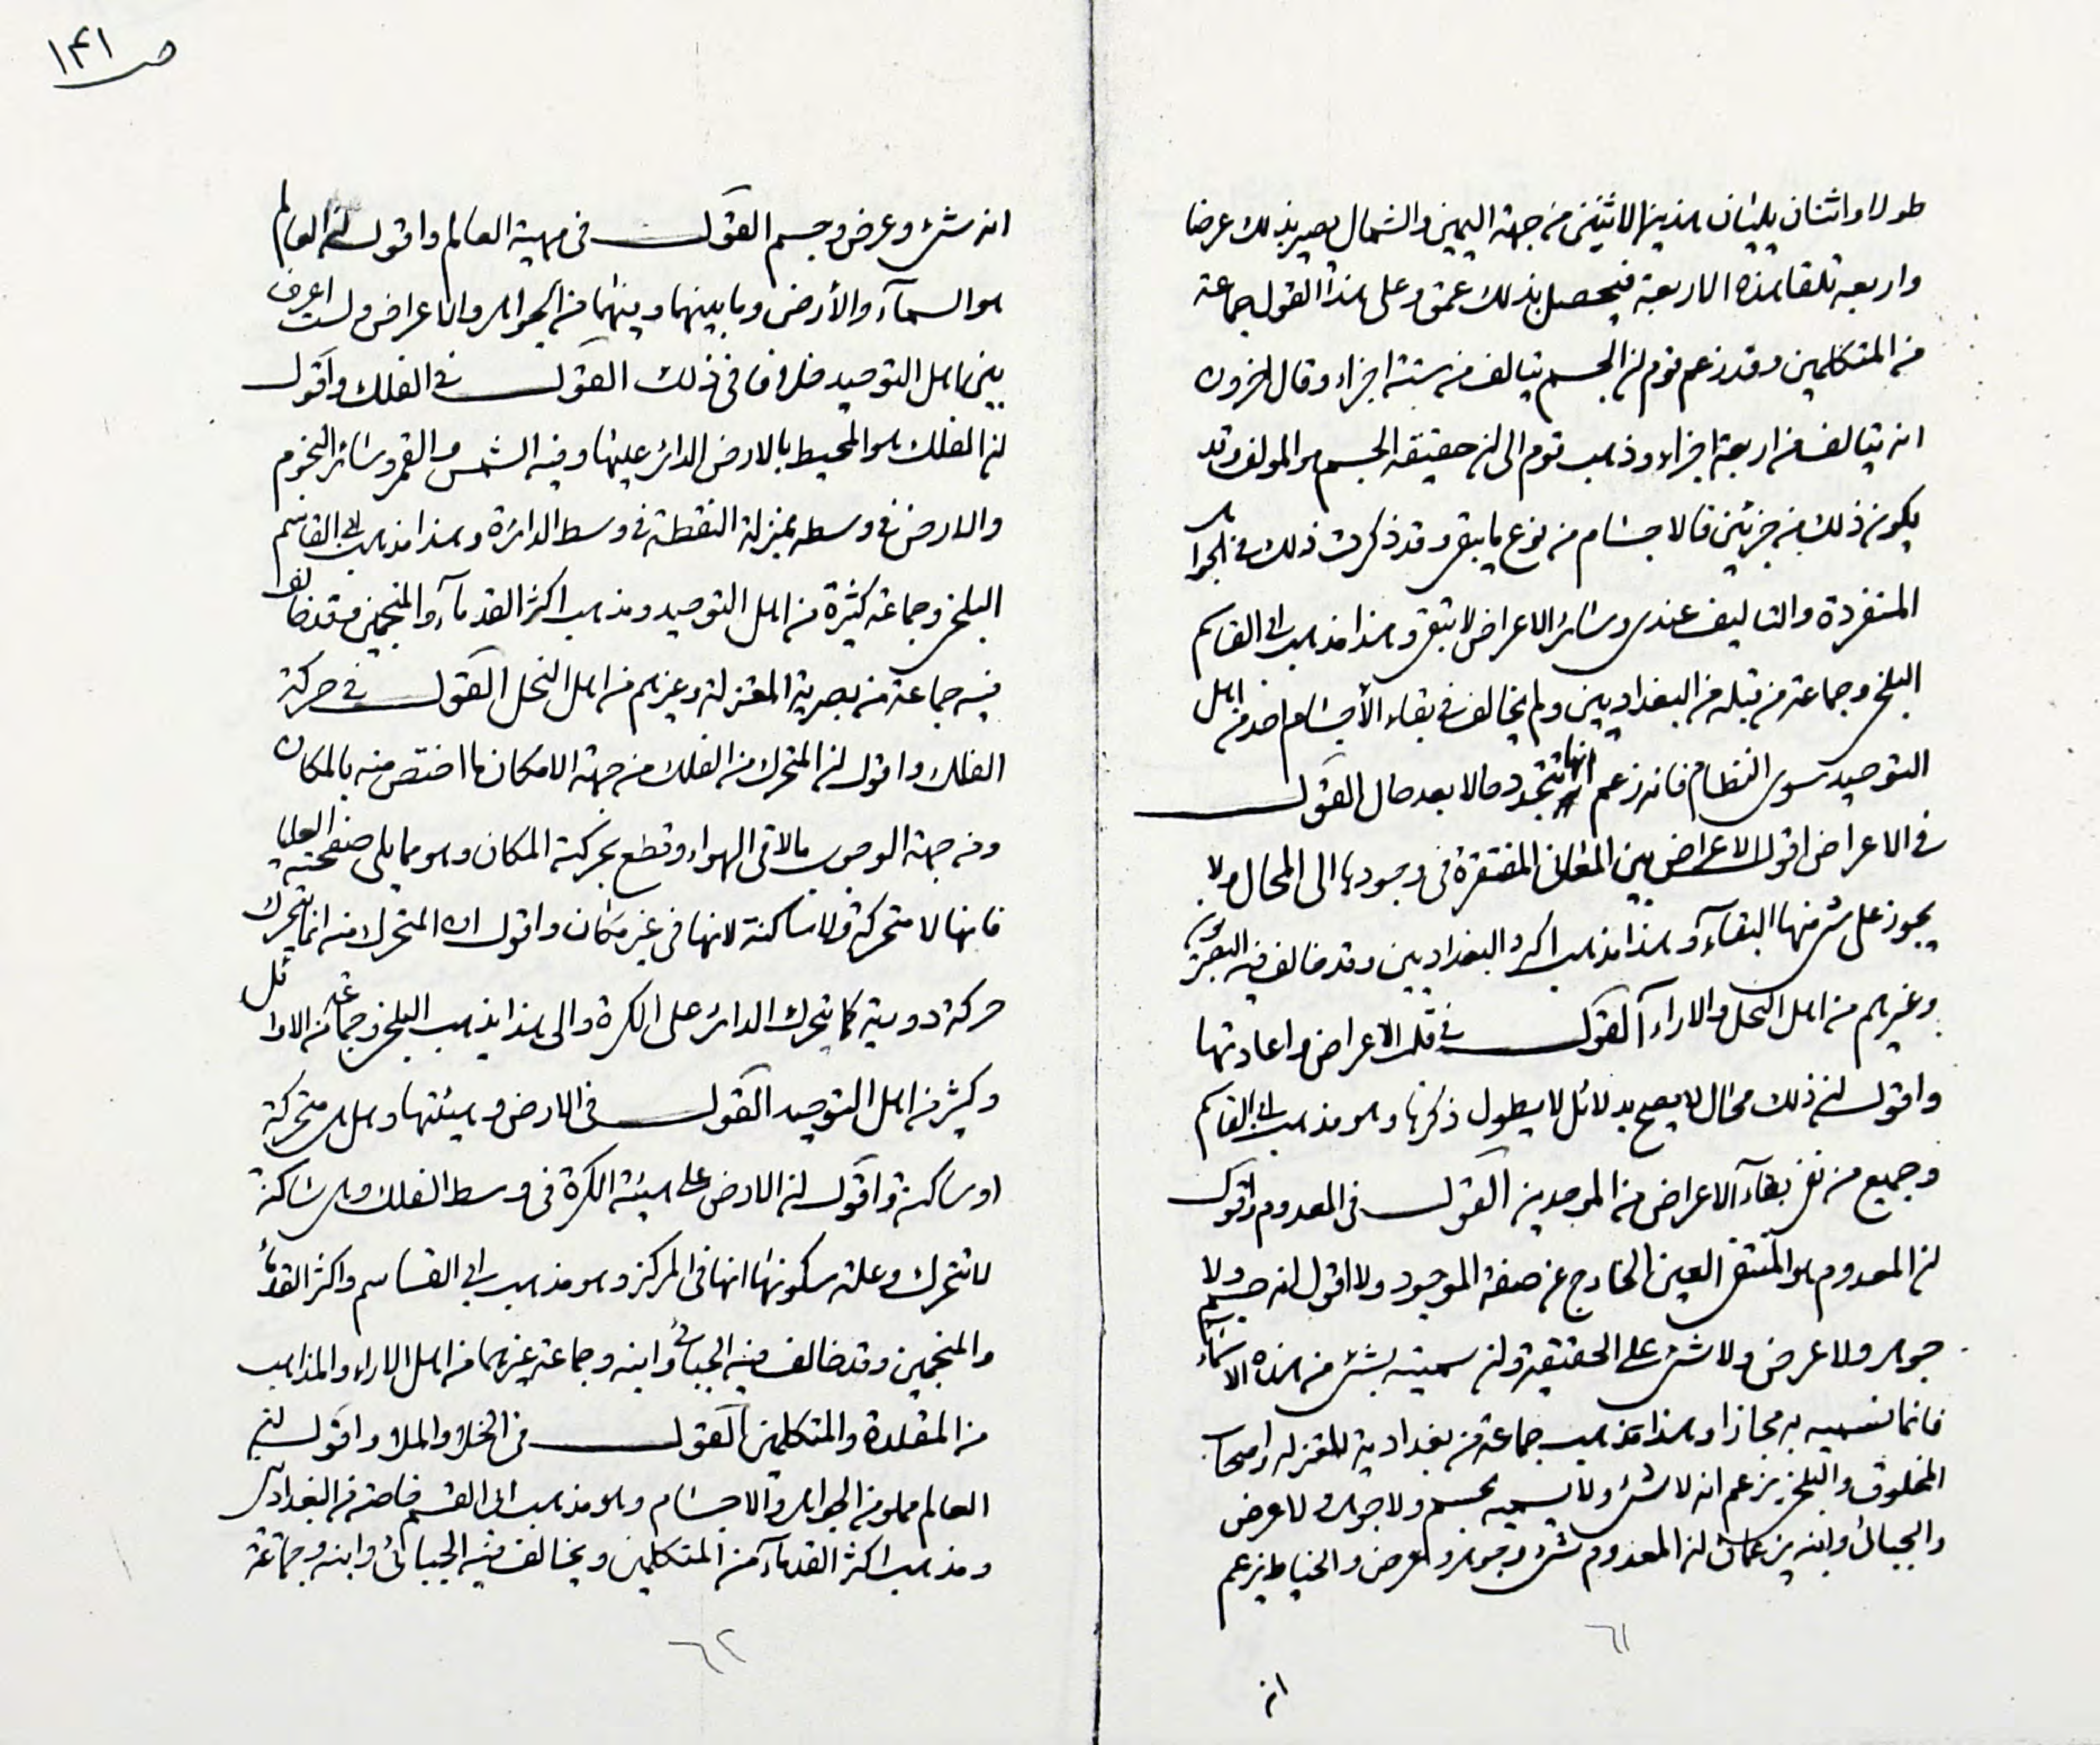 طولا واثنان يليان هذين الاثنين من جهة اليمين والشمال يصير بذلك عرضا
واربعه تلقا هذه الاربعة فيحصل بذلك عمق وعلى هذا القول جماعة
من المتكلمين وقد زعم قوم ان الجسم يتالف من ستة اجزاء وقال اخرون
انه يتالف من اربعة اجزاء وذهب قوم الى ان حقيقة الجسم هو المولف وقد
يكون ذلك من جزئين فالاجسام من نوع ما يبقى وقد ذكرت ذلك في الجواهر
المنفردة والتاليف عندى وسائر الاعراض لا تبقى وهذا مذهب ابى القاسم
البلخى وجماعة من قبله من البغداديين ولم يخالف في بقاء الأجسام احد من اهل
التوحيد سوى النظام فانه زعم انها تتجدد حالا بعد حال القول
في الاعراض اقول الاعراض هى المعانى المفتقرة فى وجودها الى المحال ولا
يجوز على شئ منها البقاء وهذا مذهب اكثر البغداديين وقد خالف فيه البصريون
وغيرهم من اهل النحل والاراء القول في قلب الاعراض واعادتها
واقول ان ذلك محال لا يصح بدلائل لا يطول ذكرها وهو مذهب ابى القاسم
وجميع من نفى بقاء الاعراض من الموحدين القول فى المعدوم واقول
ان المعدوم هو المنتفى العين الخارج عن صفة الموجود ولا اقول انه جسم ولا
جوهر ولا عرض ولا شئ على الحقيقة وان سميته بشئ من هذه الاسماء
فانما نسميه به مجازا وهذا مذهب جماعة من بغدادية المعتزلة واصحاب
المخلوق والبلخى يزعم انه لا شئ ولا يسميه بجسم ولا جوهر ولا عرض
والجبائى وابنه يزعمان ان المعدوم شئ وجوهر وعرض والخياط يزعم
٦١
انه
ص ١٤١
انه شئ وعرض وجسم القول فى مهية العالم واقول ان العالم
هو السماء والأرض وما بينهما وفيهما من الجواهر والاعراض ولست اعرف
بين اهل التوحيد خلافا فى ذلك القول في الفلك واقول
ان الفلك هو المحيط بالارض الدائر عليها وفيه الشمس والقمر وسائر النجوم
والارض فى وسطه بمنزلة النقطة فى وسط الدائرة وهذا مذهب ابى القاسم
البلخى وجماعة كثيرة من اهل التوحيد ومذهب اكثر القدماء والمنجمين وقد خالف
فيه جماعة من بصرية المعتزلة وغيرهم من اهل النحل القول في حركة
الفلك واقول ان المتحرك من الفلك من جهة الامكان ما اختص منه بالمكان
ومن جهة الوجوب ما لاقى الهواء وقطع بحركته المكان وهو مما يلى صفحته العليا
فانها لا متحركة ولا ساكنة لانها فى غير مكان واقول ان المتحرك منه انما يتحرك
حركة دورية كما يتحرك الدائر على الكرة والى هذا يذهب البلخى وجماعة من الاوائل
وكثير من اهل التوحيد القول فى الارض وهيئتها وهل هى متحركة
او ساكنة واقول ان الارض على هيئة الكرة فى وسط الفلك وهى ساكنة
لا تتحرك وعلة سكونها انها فى المركز وهو مذهب ابى القاسم واكثر القدماء
والمنجمين وقد خالف فيه الجبائى وابنه وجماعة غيرهما من اهل الاراء والمذاهب
من المقلدة والمتكلمين القول فى الخلاء والملاء واقول ان
العالم مملو من الجواهر والاجسام وهو مذهب ابى القسم خاصة من البغداديين
ومذهب اكثر القدماء من المتكلمين ويخالف فيه الجبائى وابنه وجماعة
٦٢